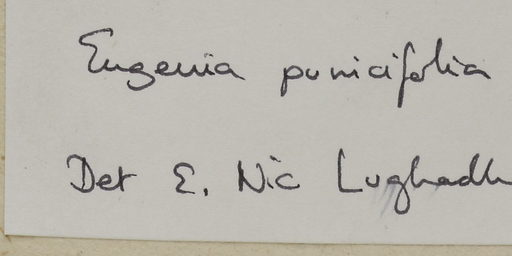 Eugenia punicifolia
Det E. Nic Lughadh